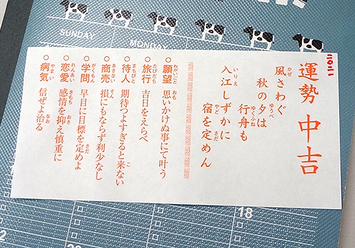 運勢 中吉
風さわぐ
秋の夕は
行舟も
入江しずかに
宿を定めん
○願望 思いかけぬ事にて叶う
○旅行 吉日をえらべ
○待人 期待つよすぎると来ない
○商売 損にもならず利少なし
○学問 早目に目標を定めよ
○恋愛 感情を抑え慎重に
○病気 信ぜよ治る
SUNDAY
MONDAY